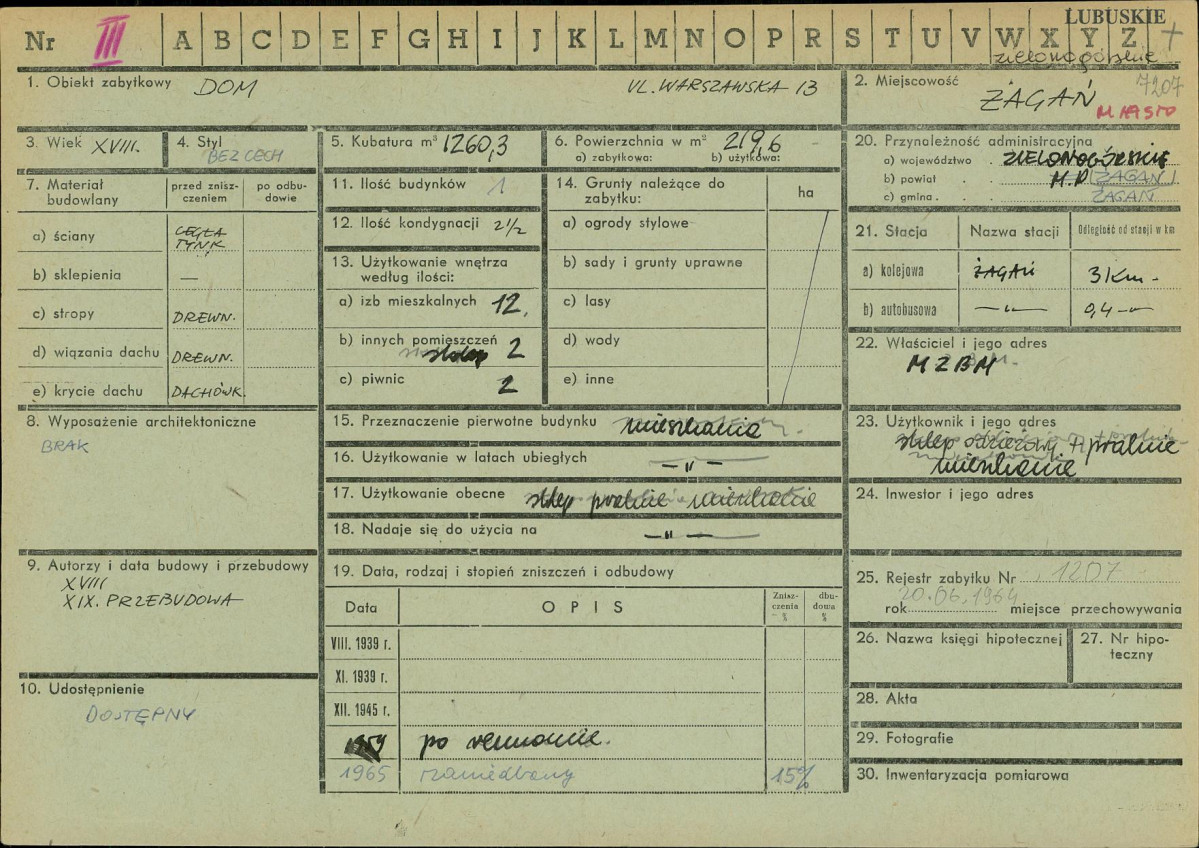 LUBUSKIE
Nr III A B C D E F G H I J K L M N O P R S T U V W X Y Z +
zielonogórskie
1. Obiekt zabytkowy DOM UL. WARSZAWSKA 13
2. Miejscowość 7207
ŻAGAŃ
MIASTO
3. Wiek XVIII.
4. Styl BEZ CECH
5. Kubatura m³ 1260,3
6. Powierzchnia w m² 219,6
a) zabytkowa: b) użytkowa:
7. Materiał budowlany
przed zniszczeniem
po odbudowie
a) ściany CEGŁA TYNK
b) sklepienia —
c) stropy DREWN.
d) wiązania dachu DREWN.
e) krycie dachu DACHÓWK.
8. Wyposażenie architektoniczne
BRAK
9. Autorzy i data budowy i przebudowy
XVIII
XIX. PRZEBUDOWA
10. Udostępnienie
DOSTĘPNY
11. Ilość budynków 1
12. Ilość kondygnacji 2½
13. Użytkowanie wnętrza
według ilości:
a) izb mieszkalnych 12.
b) innych pomieszczeń
sklep 2
c) piwnic 2
14. Grunty należące do
zabytku:
ha
a) ogrody stylowe
b) sady i grunty uprawne
c) lasy
d) wody
e) inne
15. Przeznaczenie pierwotne budynku mieszkanie
16. Użytkowanie w latach ubiegłych — „ —
17. Użytkowanie obecne sklep pralnie mieszkanie
18. Nadaje się do użycia na — „ —
19. Data, rodzaj i stopień zniszczeń i odbudowy
Data OPIS Zniszczenia % dbudowa %
VIII. 1939 r.
XI. 1939 r.
XII. 1945 r.
1959 po remoncie.
1965 zaniedbany 15%
20. Przynależność administracyjna
a) województwo . ZIELONOGÓRSKIE
b) powiat . . M.P ŻAGAŃ
c) gmina . . ŻAGAŃ
21. Stacja Nazwa stacji Odległość od stacji w km
a) kolejowa ŻAGAŃ 3 Km -
b) autobusowa — „ — 0,4 — „ —
22. Właściciel i jego adres
MZBM
23. Użytkownik i jego adres
sklep odzieżowy + pralnie
mieszkanie
24. Inwestor i jego adres
25. Rejestr zabytku Nr 1207
rok 20.06.1964 miejsce przechowywania
26. Nazwa księgi hipotecznej
27. Nr hipoteczny
28. Akta
29. Fotografie
30. Inwentaryzacja pomiarowa